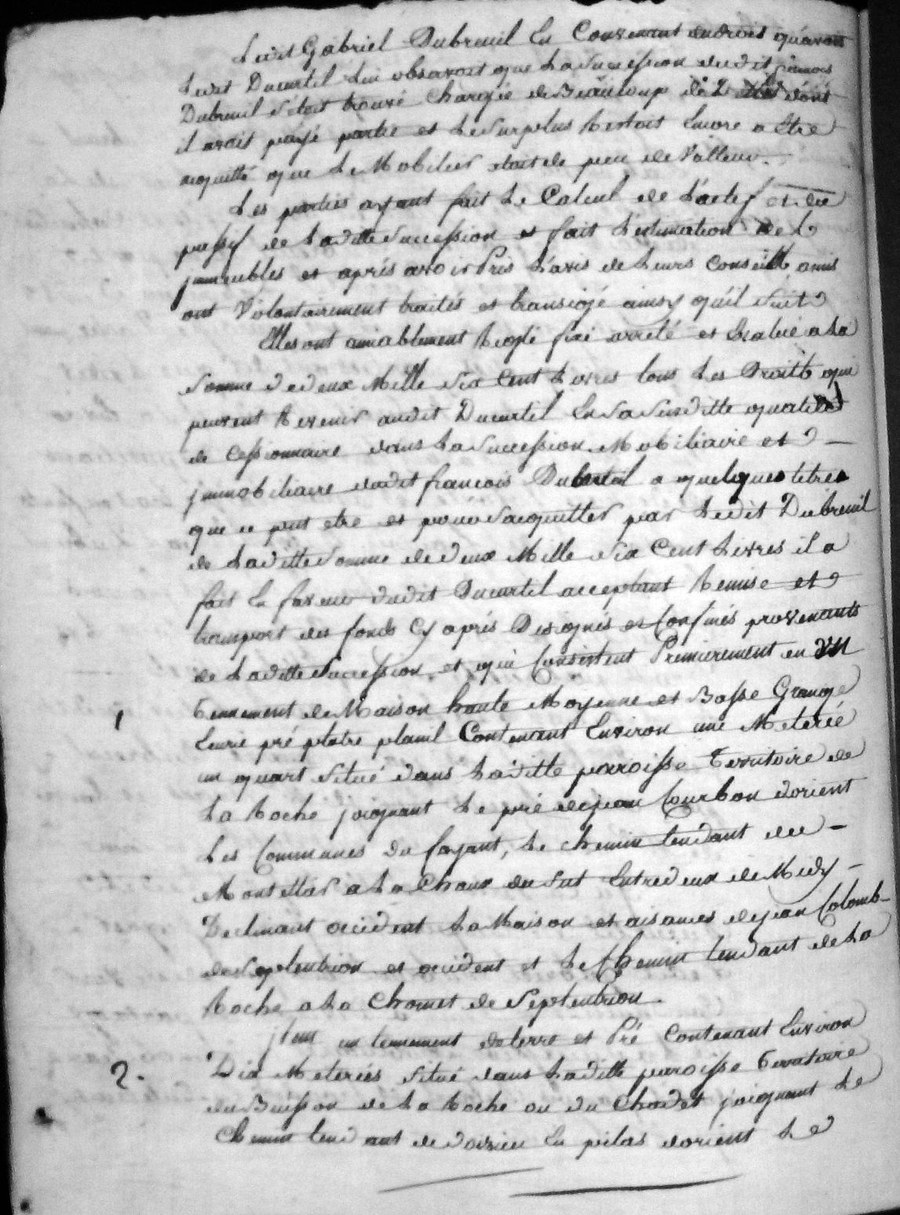 Ledit Gabriel Dubreuil En Convenant endroit qu'avant
Ledit Ducurtil Lui observoit que La Sucession dudit francois
Dubreuil S'etoit trouvé Chargée de Beaucoup de Dettes dont
il avoit payé partie et Le Surplus Restoit Encore a Etre
acquitté que Le Mobilier etoit de peu de Valleur. -
Les parties ayant fait Le Calcul de L'actif et du
passif de Laditte Succession et fait L'estimation de L
jmmeubles et aprés avoir Pris L'avis de Leurs Conseills amis
ont Volontairement traités et transigé ainsy qu'il Suit
Elles ont amiablement Reglé fixé arreté et Evalué a La
Somme de deux Mille Six Cent Livres tous Les Droitts que
peuvent Revenir audit Ducurtil En Sa Susditte qualité
de Cessionnaire dans La Sucession Mobiliaire et
jmmobiliaire dudit francois Dubreuil a quelques titres
que ce put etre et pour S'acquitter par Ledit Dubreuil
de Laditte Somme de deux Mille Six Cent Livres il a
fait En faveur dudit Ducurtil acceptant Remise et
transport des fonds Cy aprés Designés et Confinés provenants
de Laditte Sucession et qui Consistent Premierement en un
1 tennement de Maison haute Moyenne et Basse Grange
Ecurie pré platre Contenant Environ une Meterée
un quart Situé dans Laditte paroisse territoire de
La Roche joignant Le pré de jean Courbon d'orient
Les Communes du fayant, Le chemin tendant de -
Montellar a La Chaux du Sut Entredeux de Midy -
Declinant occident La Maison et aisances de jean Colomb -
de Septentrion et occident et Le Chemin tendant de La
Roche a La Chomet de Septentrion -
jtem un tennement de terre et Pré Contenant Environ
2. Dix Meterées Situé dans Laditte paroisse territoire
du Buisson de La Roche ou du Chodet joignant Le
Chemin tendant de doizieu En pilat d'orient Le